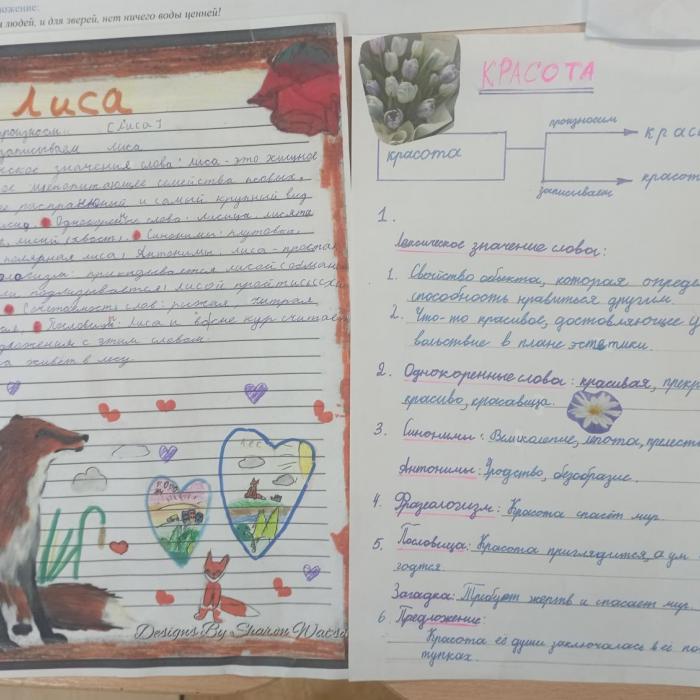 ожение:
людей, и для зверей, нет ничего воды ценней!
Лиса
произносим [лиса]
записываем лиса
ское значения слова: лиса - это хищное
млекопитающее семейства псовых,
распранённый и самый крупный вид
лисиц. Однокоренные слова: лисица, лисята
лисий (хвост). Синонимы: плутовка,
полярная лиса; Антонимы: лиса - простак
прикидывается лисой, обман
подлизывается; лисой пройтись
Сочетаемость слов: рыжая, хитрая
Пословица: Лиса и во сне кур считает
дложением с этим словам
а живёт в лесу.
ЛЕС
Designs By Sharon Watso
КРАСОТА
произносим
крас
красота
красот
записываем
1.
Лексическое значение слова:
1. Свойство объекта, которая опреде
способность нравиться другим.
2. Что-то красивое, достовляющее у
вольствие в плане эстетики.
2. Однокоренные слова: красивая, прекр
красиво, красавица.
3. Синонимы: Великолепие, лепота, прелест
Антонимы: Уродство, безобразие.
4. Фразеологизм: Красота спасёт мир.
5. Пословица: Красота приглядится, а ум
зодтся.
Загадка: Требует жертв и спасает мир.
6. Предложение:
Красота её души заключалась в её по
тупках.